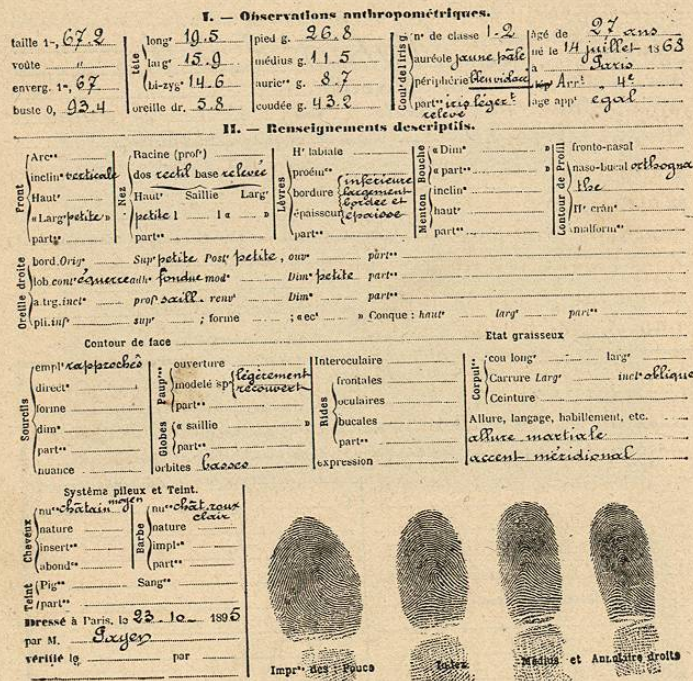 I. — Observations anthropométriques.
taille 1m, 67.2
voûte "
enverg. 1m, 67
buste 0, 93.4
tête
longr 19.5
largr 15.9
bi-zygr 14.6
oreille dr. 5.8
pied g. 26.8
médius g. 11.5
auricre g. 8.7
coudée g. 43.2
Coulr de l'iris g.
no de classe 1-2
auréole jaune pâle
périphérie bleu violacé
partés iris légert relevé
âgé de 27 ans
né le 14 juillet 1868
à Paris
Arrt 4e
âge appt égal
II. — Renseignements descriptifs.
Front
Arcde
inclinon verticale
Hautr
« Largr petite »
partés
Nez
Racine (profr)
dos rectil base relevée
Hautr Saillie Largr
petite 1 1 « »
partés
Lèvres
Hr labiale
proémce
bordure
épaisseur
inférieure largement bordée et épaisse
partés
Menton Bouche
« Dimon »
« partés »
inclinon
hautr
partés
Contour de Profil
fronto-nasal
naso-bucal orthogna the
Hr crâne
malformon
Oreille droite
bord. Orig Supr petite Postr petite, ouv partés
lob. contr équerre adhce fondue modé Dimon petite partés
a. trg. inclon profl saill. renvt Dimon partés
pli. infr supr ; forme ; « ect » Conque : hautr largr partés
Contour de face Etat graisseux
Sourcils
emplt rapprochés
direction
forme
dimon
partés
nuance
Paupres
ouverture
modelé spr légèrement recouvert
partés
Globes
« saillie »
partés
orbites basses
Rides
Interoculaire
frontales
oculaires
bucales
partés
expression
Corpulce
cou longr largr
Carrure Largr inclon oblique
Ceinture
Allure, langage, habillement, etc.
allure martiale
accent méridional
Système pileux et Teint.
Cheveux
nuce châtain moyen
nature
inserton
abondce
Barbe
nuce chât. roux clair
nature
implon
partés
Teint
Pigre Sangne
partés
Dressé à Paris, le 23-10- 1895
par M.
vérifié le par
Impron des : Pouce Index Médius et Annulaire droits